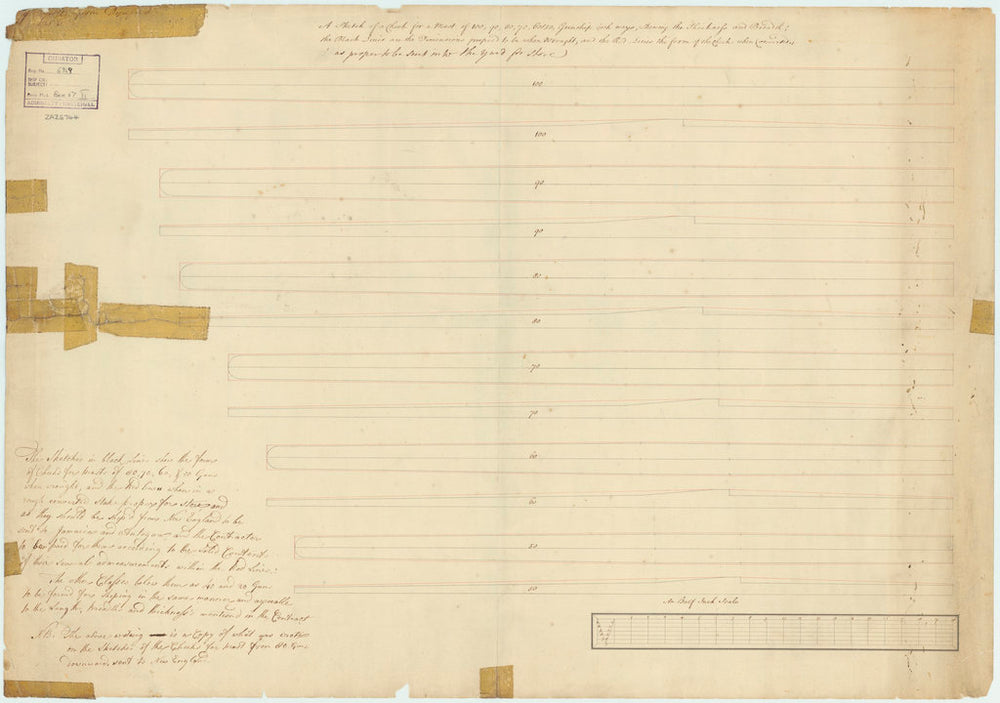 A Sketch of a Cheek for a Mast of 100, 90, 80, 70, 60 & 50, Gun ship each ways, shewing the Thickness and Breadth;
the Black Lines are the Dimensions proposed to be when Wrought, and the Red Lines the form of the Cheek when Converted
as proper to be sent into the Yard for Store
CURATOR
Reg. No. 6719
SUBJECT
Box 57
ADMIRALTY WHITEHALL
ZAZ6764
100
100
90
90
80
80
70
70
60
60
50
50
The Sketches in black Lines shew the form
of Cheeks for Masts of 80, 70, 60, & 50 Guns
when wrought, and the Red lines when in a
rough converted State proper for store and
as they should be ship'd from New England to be
sent to Jamaica and Antigua and the Contractor
to be paid for them according to the Solid Content
of the several admeasurements within the Red Lines.
The other Classes below them as 40 and 20 Gun
to be found for shiping in the same manner and agreeable
to the Length, breadth and thickness mentioned in the Contract
NB. The above writing is a Copy of what was wrote
on the Sketches of the Cheeks for Mast from 80 Guns
downwards sent to New England.
An Half Inch Scale